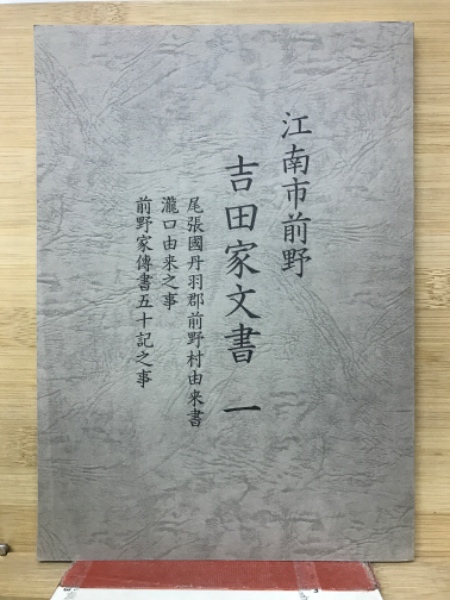 江南市前野
吉田家文書 一
尾張國丹羽郡前野村由来書
瀧口由来之事
前野家傳書五十記之事